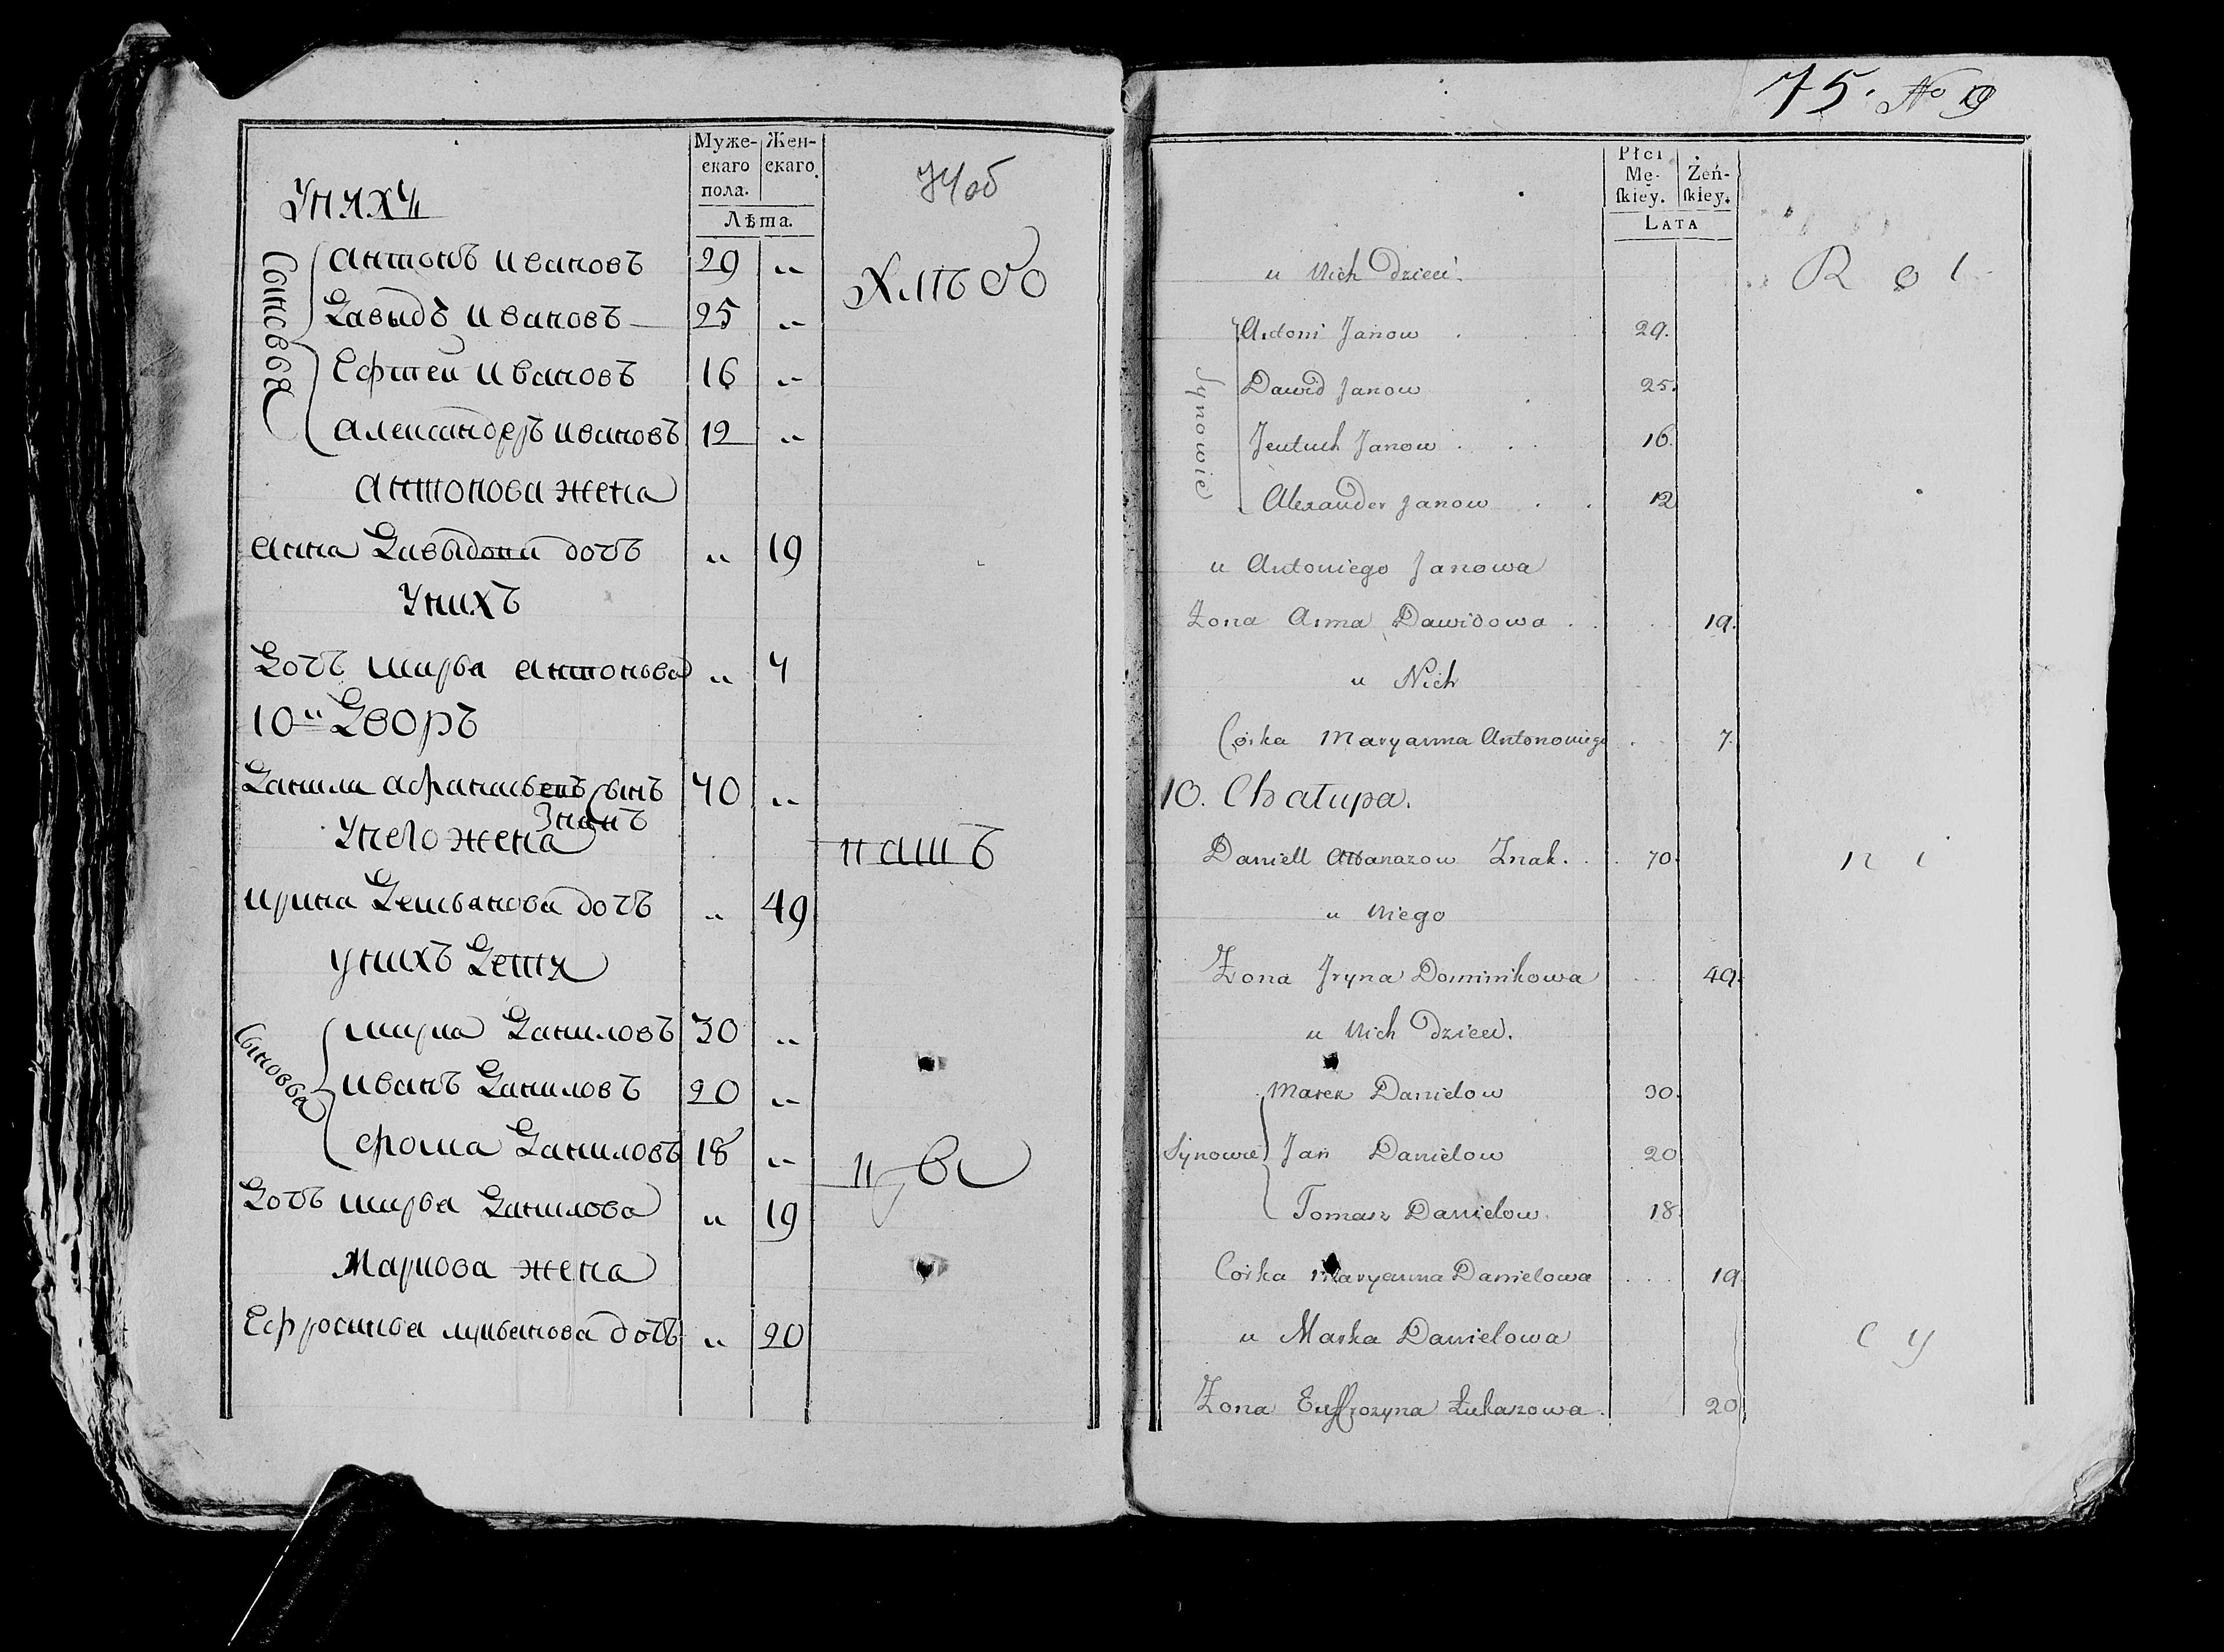 Мужескаго пола.
Женскаго.
Лѣта.
74об
Унихъ
Сыновья
Антонъ Ивановъ 29 „
Давыдъ Ивановъ 25 „
Ефтей Ивановъ 16 „
Александръ Ивановъ 12 „
Антонова жена
Анна Давыдова дочь „ 19
Унихъ
Дочь Марья Антонова „ 7
10й Дворъ
Данила Афанасьевъ сынъ 70 „
Знакъ
Унего жена
Ирина Демьянова дочь „ 49
Унихъ Дети
Сыновья
Марка Даниловъ 30 „
Иванъ Даниловъ 20 „
Фома Даниловъ 18 „
Дочь Марья Данилова „ 19
Маркова жена
Ефросинья Лукьянова дочь „ 20
Хлѣбо
паш
цы
75. No 9
Płci Męſkiey.
Żeńſkiey.
LATA
u Nich dzieci.
Synowie
Antoni Janow 29.
Dawid Janow 25.
Jeutuch Janow 16.
Alexander Janow 12
u Antoniego Janowa
Żona Anna Dawidowa 19.
u Nich
Corka Maryanna Antonowiego 7.
10. Chałupa.
Daniell Atanazow Znak. 70.
u Niego
Żona Jryna Dominikowa 49.
u Nich dzieci.
Synowie
Marek Danielow 30.
Jan Danielow 20
Tomasz Danielow. 18
Corka Maryanna Danielowa 19
u Marka Danielowa
Żona Euffrozyna Łukaszowa. 20
Rol
ni
cy